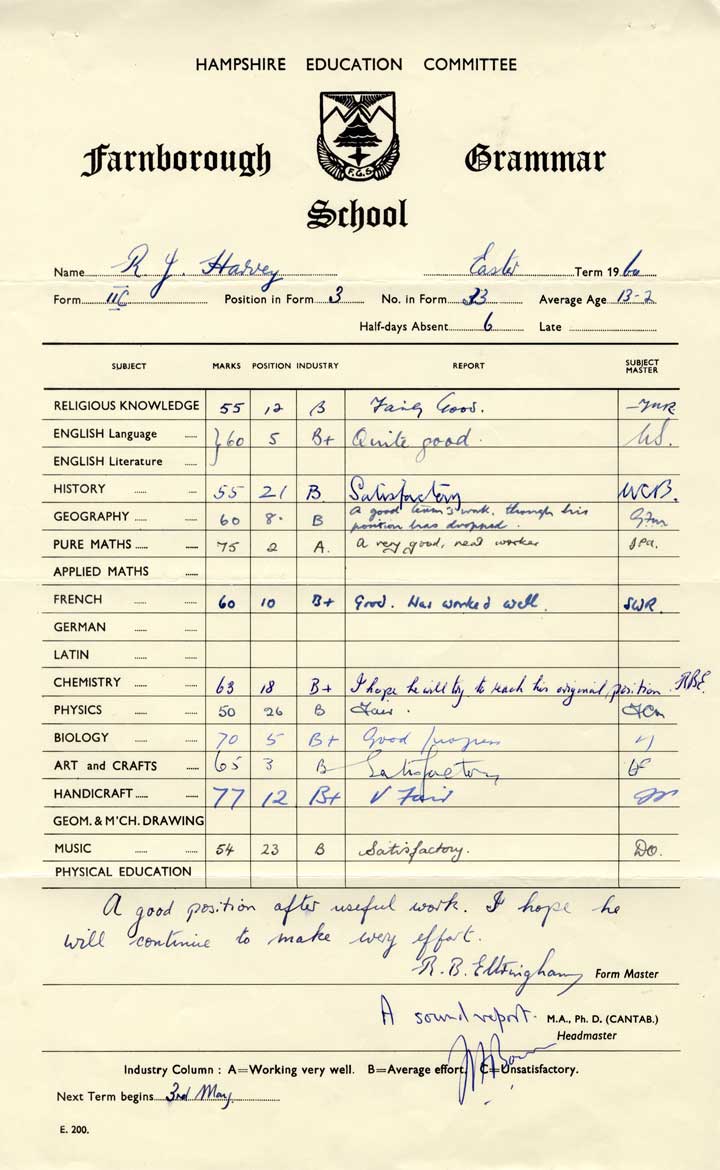 HAMPSHIRE EDUCATION COMMITTEE
Farnborough Grammar
F.G.S
School
Name R. J. Harvey Easter Term 1960
Form IIC Position in Form 3 No. in Form 33 Average Age 13-2
Half-days Absent 6 Late
SUBJECT MARKS POSITION INDUSTRY REPORT SUBJECT MASTER
RELIGIOUS KNOWLEDGE 55 12 B Fairly Good.
ENGLISH Language 60 5 B+ Quite good.
ENGLISH Literature
HISTORY 55 21 B. Satisfactory WCB.
GEOGRAPHY 60 8. B A good term's work, though his
position has dropped.
PURE MATHS 75 2 A. A very good, neat worker
APPLIED MATHS
FRENCH 60 10 B+ Good. Has worked well. SWR.
GERMAN
LATIN
CHEMISTRY 63 18 B+ I hope he will try to reach his original position. RBE.
PHYSICS 50 26 B Fair.
BIOLOGY 70 5 B+ Good progress
ART and CRAFTS 65 3 B Satisfactory
HANDICRAFT 77 12 B+ V Fair
GEOM. & M'CH. DRAWING
MUSIC 54 23 B Satisfactory. DO.
PHYSICAL EDUCATION
A good position after useful work. I hope he
will continue to make every effort.
R. B. Ellingham Form Master
A sound report. M.A., Ph. D. (CANTAB.)
Headmaster
Industry Column : A=Working very well. B=Average effort. C=Unsatisfactory.
Next Term begins 3rd May
E. 200.